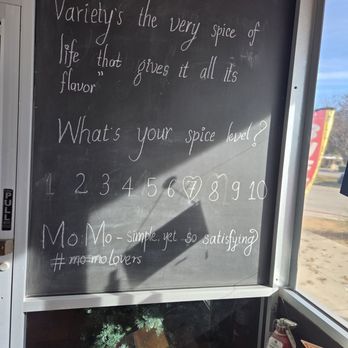 Variety's the very spice of
life that gives it all its
flavor"
What's your spice level?
1 2 3 4 5 6 7 8 9 10
Mo:Mo - simple yet so satisfying
# mo-mo lovers
PULL